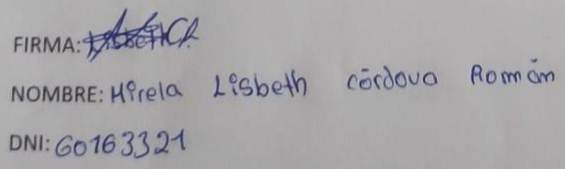 FIRMA:
NOMBRE: Mirela Lisbeth Córdova Román
DNI: 60163321